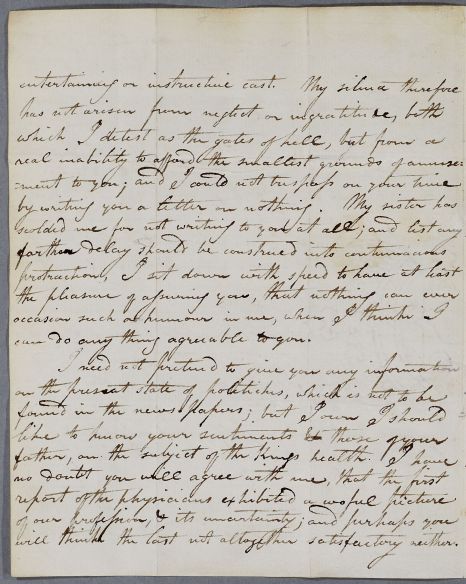 entertaining or instructive cast. My silence therefore
has not arisen from neglect or ingratitude, both
which I detest as the gates of hell, but from a
real inability to afford the smallest grounds of amuse
ment to you; and I could not trespass on your time
by writing you a letter on nothing. My sister has
scolded me for not writing to you at all; and lest any
farther delay should be construed into contumacious
protraction, I sit down with speed to have at least
the pleasure of assuring you, that nothing can ever
occasion such a humour in me, when I think I
can do any thing agreeable to you.
I need not pretend to give you any information
on the present state of politicks, which is not to be
found in the news papers; but I own I should
like to know your sentiments & those of your
father, on the subject of the Kings health. I have
no doubt you will agree with me, that the first
report of the physicians exhibited a woful picture
of our profession, & its uncertainty; and perhaps you
will think the last not altogether satisfactory neither.